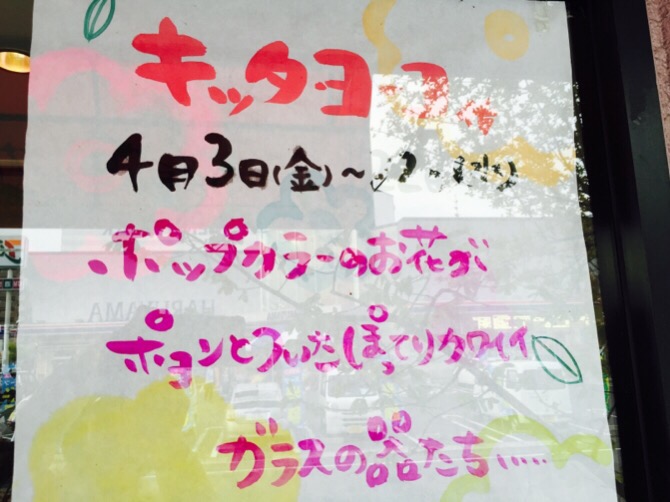 キッタヨーコ
4月3日(金)〜
ポップカラーのお花が
ポヨンとついたぽってりカワイイ
ガラスの器たち……
HARUYAMA